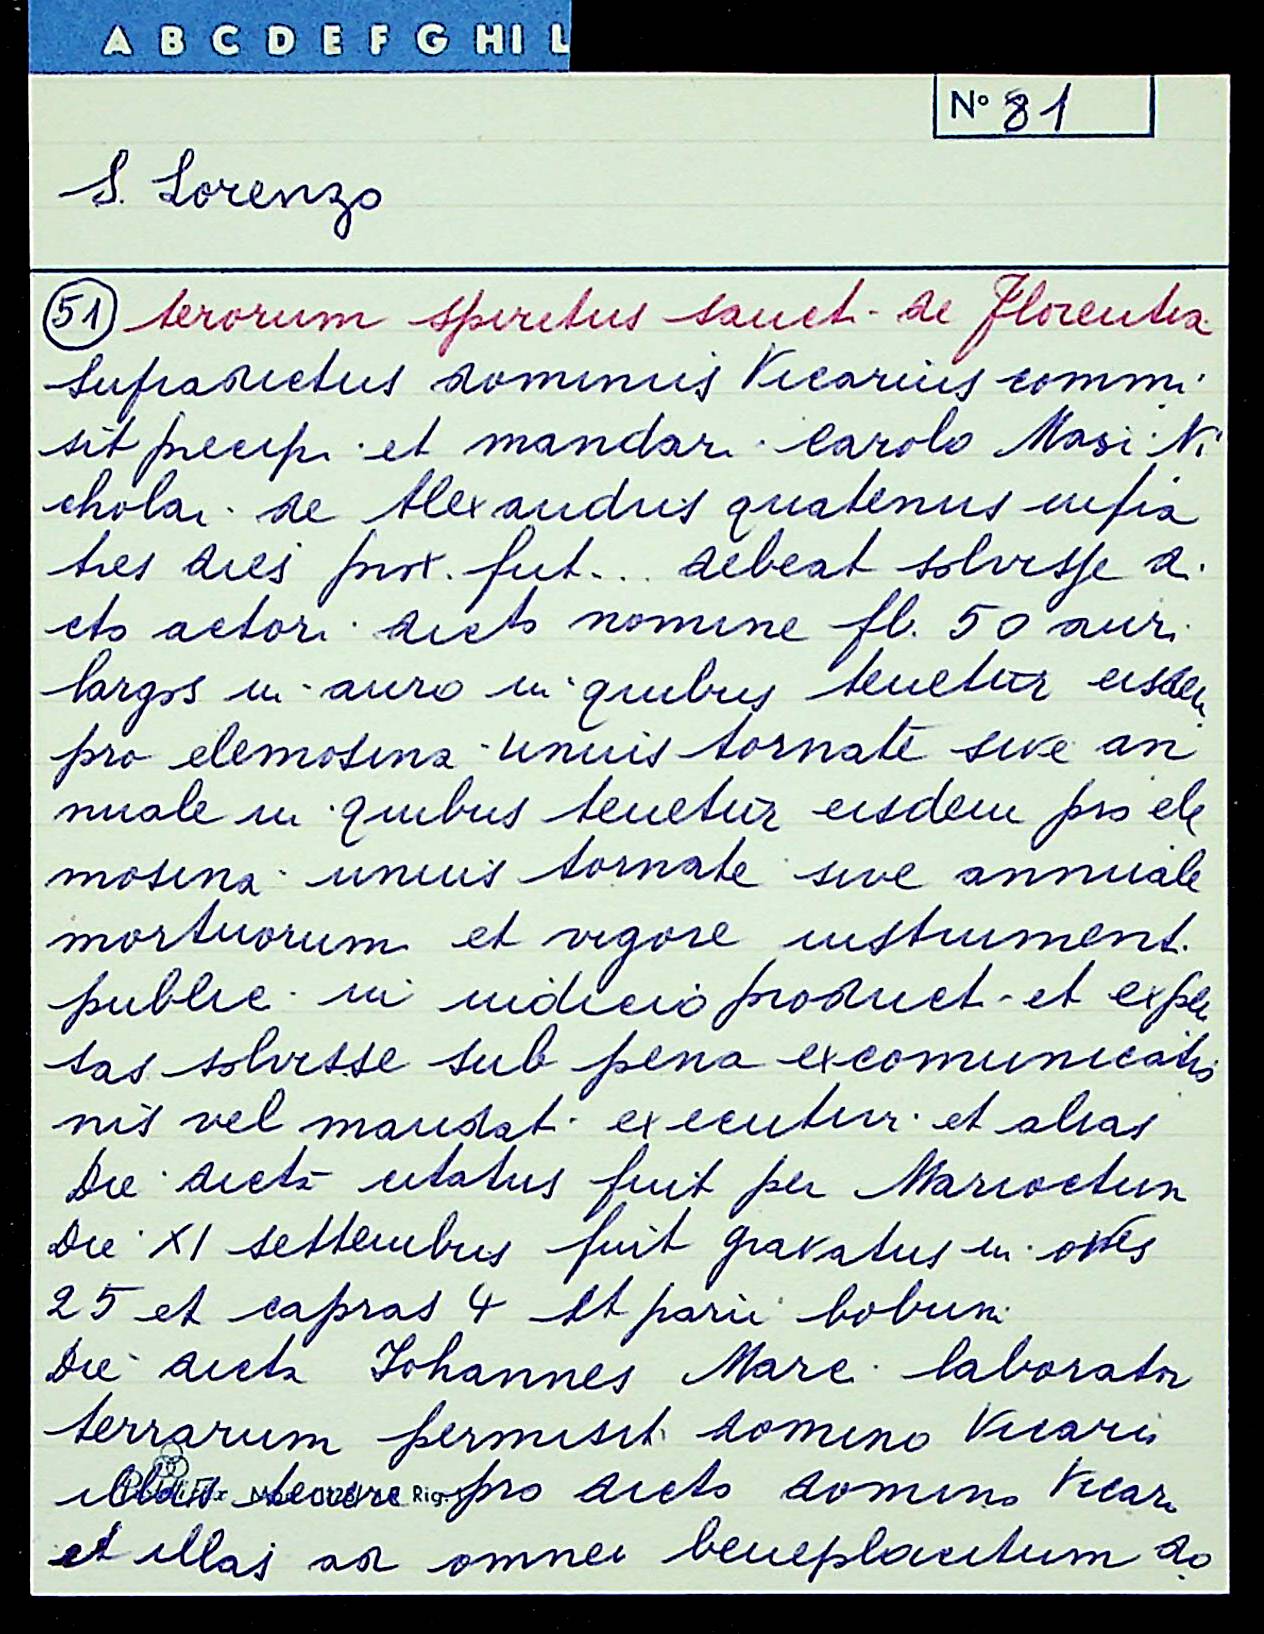 A B C D E F G HI L
N° 81
S. Lorenzo
51 terorum spiritus sanct. de Florentia
Supradictus dominus Vicarius commi
sit precip. et mandar. Carolo Masi Ni
cholai. de Alexandris quatenus infra
tres dies prox. fut... debeat solvisse di
cto actori dicto nomine fl. 50 auri
largos in auro in quibus tenetur eisdem
pro elemosina unius tornate sive an
nuale in quibus tenetur eisdem pro ele
mosina unius tornate sive annuale
mortuorum et vigore instrument.
public. in iudicio product. et expen
sas solvisse sub pena excomunicatio
nis vel mandat. executiv. et alias
Die dicta citatus fuit per Marioctum
Die XI settembris fuit gravatus in oves
25 et capras 4 et parii bobum
Die dicta Johannes Marc. laborator
terrarum permisit domino Vicario
illas tenere pro dicto domino Vicar.
et illas ad omnei beneplacitum do